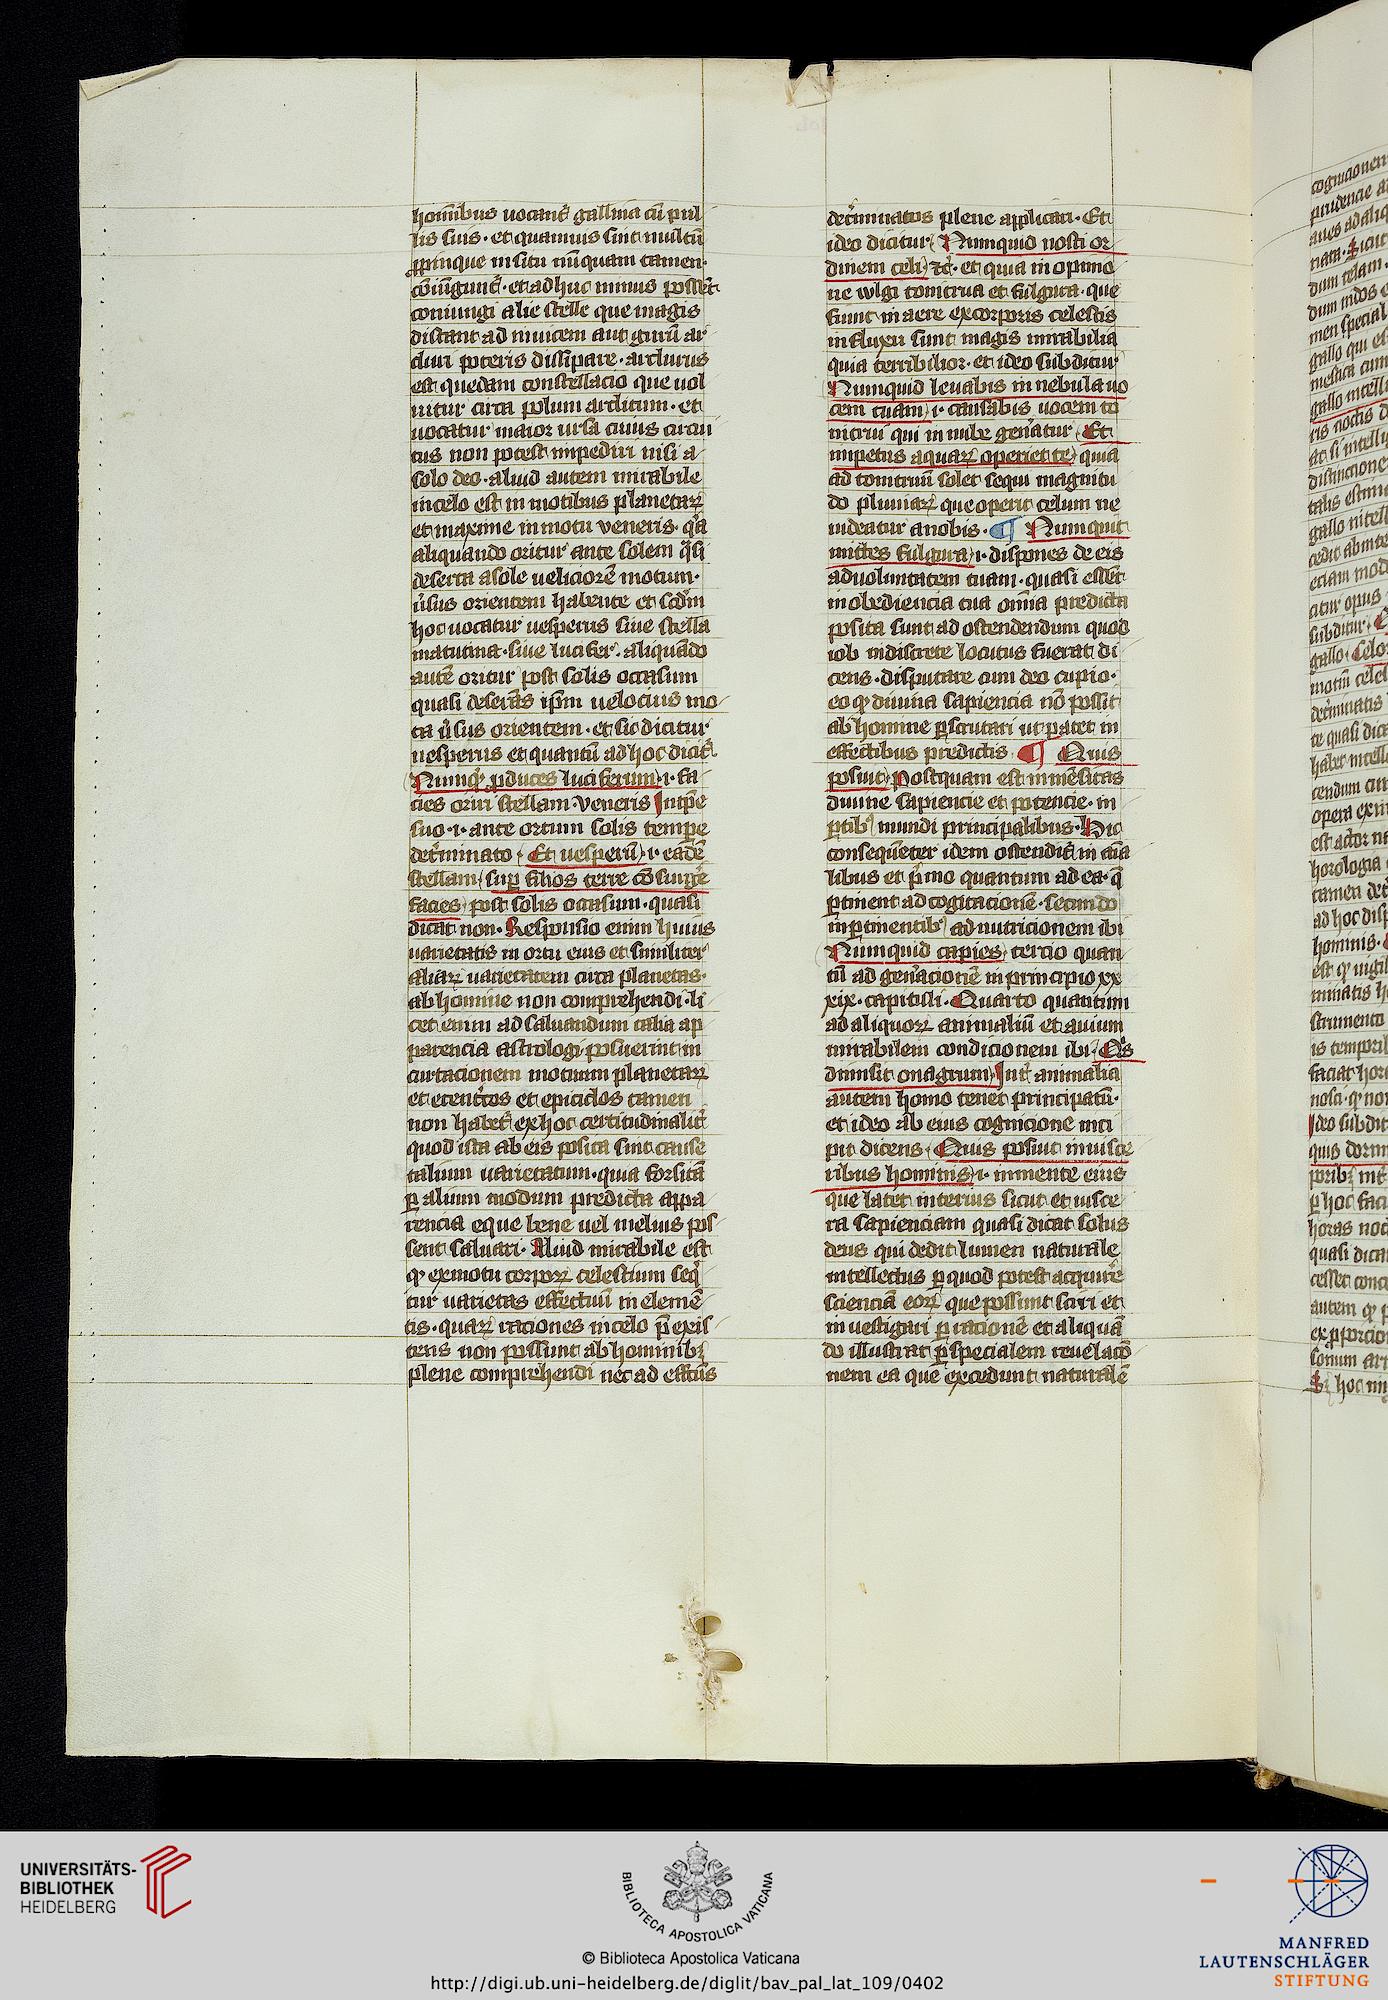 hominibus vocant̄ gallina cū pul
lis suis · et quamuis sint multū
ꝓpinque in situ nūquam tamen ·
cōiūgunt̄ · et adhuc minus possēt
coniungi alie stelle que magis
distant ad inuicem aut girū ar
cturi poteris dissipare · arcturus
est quedam constellacio que uol
uitur circa polum articum · et
uocatur maior ursa cuius circui
tus non potest impediri nisi a
solo deo · aliud autem mirabile
in celo est in motibus planetaꝝ
et maxime in motu veneris · qͣa
aliquando oritur ante solem qͣsi
deserta a sole velociorē motum ·
ṽsus orientem habente et scdm̄
hoc uocatur uesperus siue stella
matutina · siue lucifer · aliquādo
autē oritur post solis occasum
quasi deserēs ip̄m uelocius mo
ta ṽsus orientem · et sic dicitur
uesperus et quantū ad hoc dicit̄
Numqͥd ꝓduces luciferum · i · fa
cies oriri stellam · veneris In tpē
suo · i · ante ortum solis tempe
det̄minato · Et uesperū · i · eādē
stellam sup̄ filios terre cōsurgͤe
facies post solis occasum · quasi
dicat non · Responsio enim huius
uarietatis in ortu eius et similiter
aliaꝝ uarietatem circa planetas ·
ab homine non comprehendi · li
cet enim ad saluandum talia ap
parencia astrologi posuerint in
curtacionem motuum planetaꝝ
et ecentͥcos et epiciclos tamen
non habet̄ ex hoc certitudinalit̄
quod ista ab eis posita sint cause
talium uarietatum · quia forsitā
ꝑ alium modum predicta appa
rencia eque bene uel melius pos
sent saluari · Aliud mirabile est
qͩ ex motu corpoꝝ celestium seqͥ
tur uarietas effectuū in elemē
tis · quaꝝ raciones in celo p̄exis
tens non possunt ab hominibꝫ
plene comprehendi nec ad effctūs
det̄minatos plene applicari · Et
ideo dicitur Numquid nosti or
dinem celi ⁊c̄ · et quia in opinio
ne wlgi tonitrua et fulgura · que
fiunt in aere ex corporis celestis
influxu sunt magis mirabilia
quia terribilior · et ideo subditur
Numquid levabis in nebula uo
cem tuam · i · causabis uocem to
nitrui qui in nube gen̄atur Et
inpetus aquaꝝ operiet te quia
ad tonitruū solet sequi magnitu
do pluuiaꝝ que operit celum ne
uideatur a nobis · ¶ Numquit
mittes fulgura · i · dispones de eis
ad uoluntatem tuam · quasi essēt
in obediencia tua om̄ia predicta
posita sunt ad ostendendum quod
iob indiscrete locutus fuerat di
cens · disputare cum deo cupio ·
eo qͩ diuina sapiencia nō possit
ab homine ꝑscrutari ut patet in
effectibus predictis · ¶ Quis
posuit Postquam est inmēsitas
diuine sapiencie et potencie · in
ꝑtibꝰ mundi principalibus · Hic
consequēter idem ostendit̄ in aīa
libus et pͥmo quantum ad ea · q̄
ꝑtinent ad cogitacionē · secundo
in ꝑtinentibꝰ ad nutricionem ibi
Numquid capies · tercio quan
tū ad gen̄acionē in principio xx
xix · capituli · Quarto quantum
ad aliquoꝝ animaliū et auium
mirabilem condicionem ibi · Qͥs
dimisit onagrum Int̄ animalia
autem homo tenet principatū ·
et ideo ab eius cognicione inci
pit dicens · Quis posuit in uisce
ribus hominis · i · in mente eius
que latet interius sicut et uisce
ra sapienciam quasi dicat solus
deus qui dedit lumen naturale
intellectus ꝑ quod potest acquirͤe
scienciā eoꝝ que possunt sciri et
inuestigari ꝑ racionē et aliquā
do illustrat ꝑ specialem reuelacō
nem ea que excedunt naturalē
UNIVERSITÄTS-
BIBLIOTHEK
HEIDELBERG
BIBLIOTECA APOSTOLICA VATICANA
© Biblioteca Apostolica Vaticana
http://digi.ub.uni-heidelberg.de/diglit/bav_pal_lat_109/0402
MANFRED
LAUTENSCHLÄGER
STIFTUNG